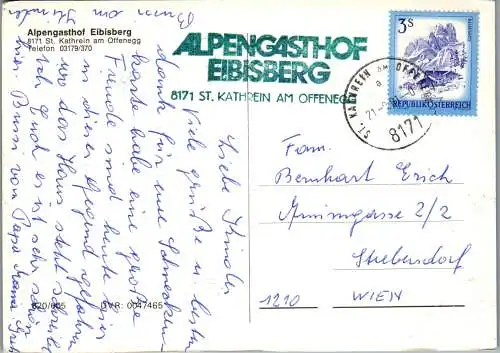 Alpengasthof Eibisberg
8171 St. Kathrein am Offenegg
Telefon 03179/370
ALPENGASTHOF
EIBISBERG
8171 ST. KATHREIN AM OFFENEGG
3 S
REPUBLIK ÖSTERREICH
ST. KATHREIN AM OFFENEGG
8171
Liebe Kinder
Viele Grüße u. besten
dank für eure
Karte habe eine große
Freude sind heute hier
in dieser Gegend gefahren
wo das Haus steht schreibe
ich Euch es ist sehr schön
hier. Bussi von Papa Mama
Fam.
Bernhart Erich
Arminigasse 2/2
Strebersdorf
1210 WIEN
620/605 DVR: 0047465